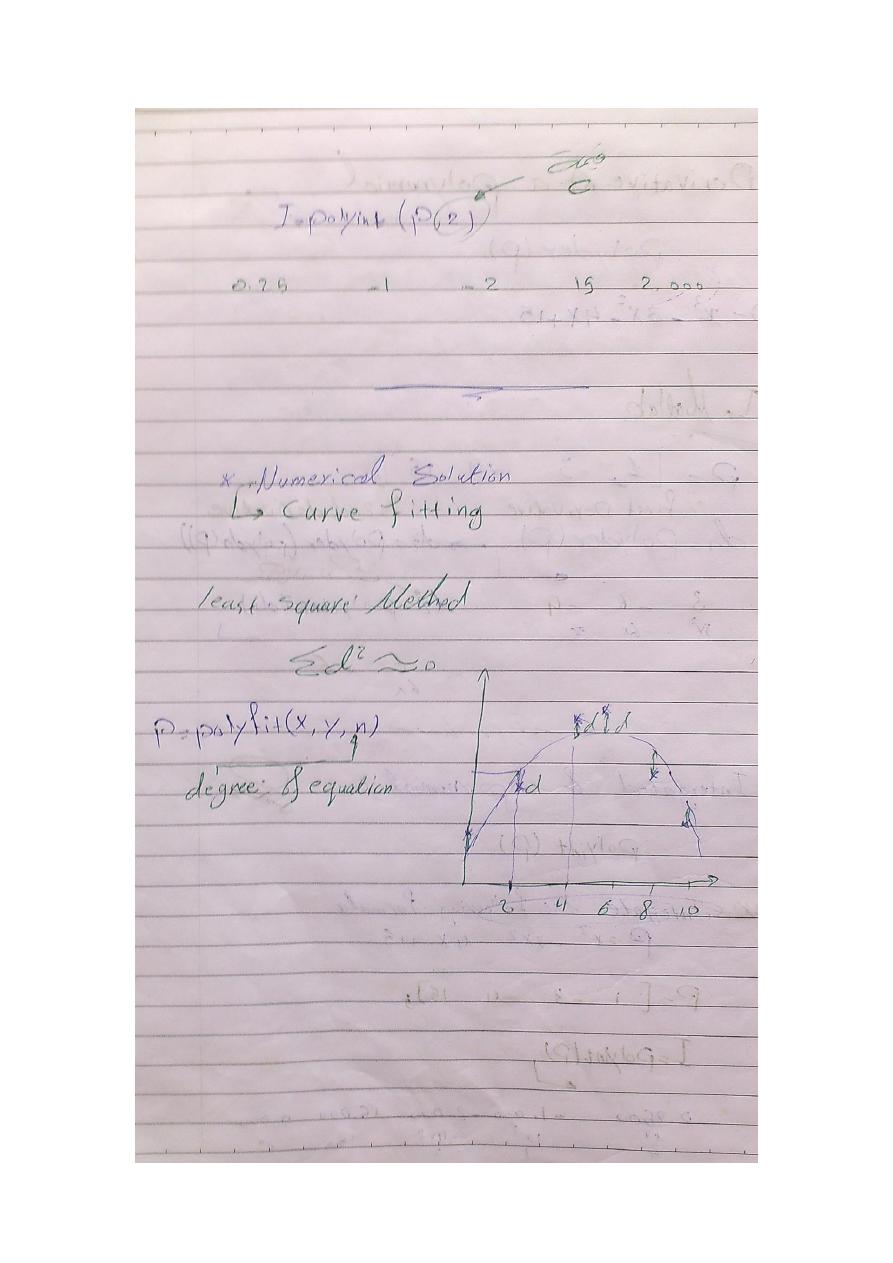 C
I=polyint (P,2)
0.25 -1 -2 15 2.000
* Numerical Solution
↳ Curve fitting
least square Method
Σd² ≃ 0
P=polyfit(x,y,n)
degree of equation
d d
d
2 4 6 8 10